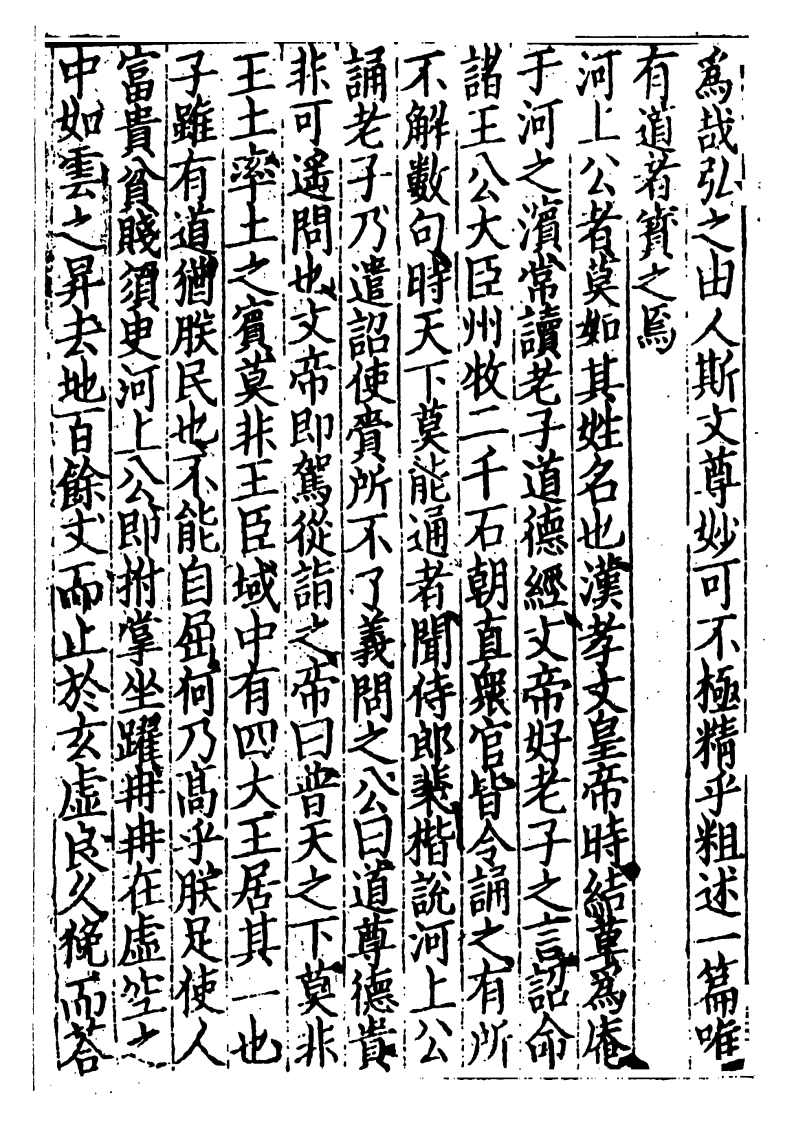 爲哉弘之由人斯文尊妙可不極精乎粗述一篇唯
有道者寳之焉
河上公者莫如其姓名也漢孝文皇帝時結草爲庵
于河之濵常讀老子道德經文帝好老子之言詔命
諸王公大臣州牧二千石朝直衆官皆令誦之有所
不解數句時天下莫能通者聞侍郎裴楷說河上公
誦老子乃遣詔使賫所不了義問之公曰道尊德貴
非可遥問也文帝即駕從詣之帝曰普天之下莫非
王土率土之賓莫非王臣域中有四大王居其一也
子雖有道猶朕民也不能自屈何乃髙乎朕足使人
富貴貧賤須史河上公即拊掌坐躍冉冉在虛空之
中如雲之昇去地百餘丈而止於玄虛良久俛而荅